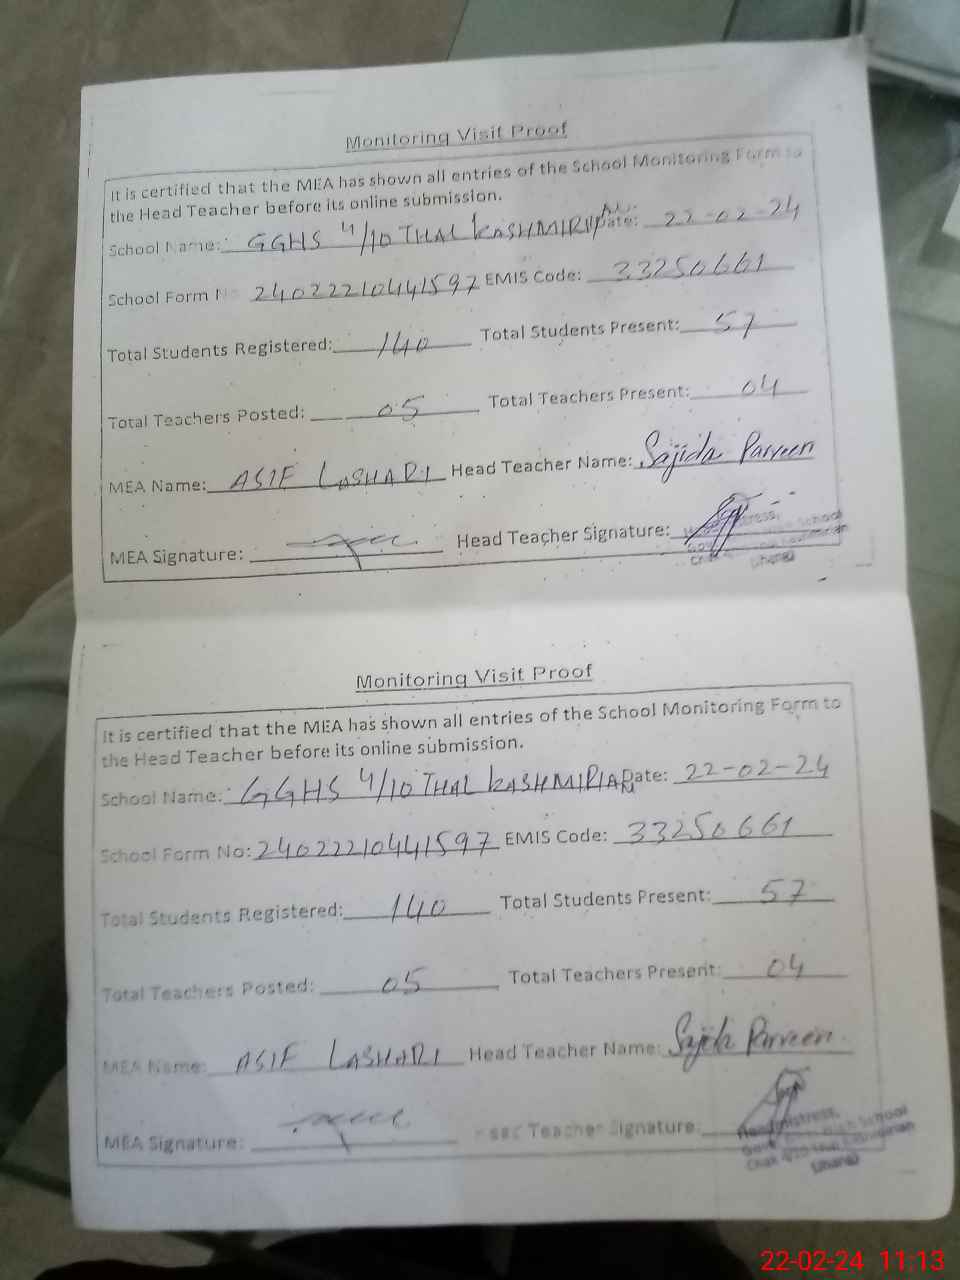 Monitoring Visit Proof
It is certified that the MEA has shown all entries of the School Monitoring Form to
the Head Teacher before its online submission.
School Name: GGHS 4/10 THAL KASHMIRIAN Date: 22-02-24
School Form N 24022210441597 EMIS Code: 33250661
Total Students Registered: 140 Total Students Present: 57
Total Teachers Posted: 05 Total Teachers Present: 04
MEA Name: ASIF LASHARI Head Teacher Name: Sajida Parveen
MEA Signature: Head Teacher Signature:
School
Monitoring Visit Proof
It is certified that the MEA has shown all entries of the School Monitoring Form to
the Head Teacher before its online submission.
School Name: GGHS 4/10 THAL KASHMIRIAN Date: 22-02-24
School Form No: 24022210441597 EMIS Code: 33250661
Total Students Registered: 140 Total Students Present: 57
Total Teachers Posted: 05 Total Teachers Present: 04
MEA Name: ASIF LASHARI Head Teacher Name: Sajida Parveen
MEA Signature: Teacher Signature:
Headmistress,
Govt. Girls High School
Chak 4/10 Thal Kashmirian
(Jhang)
22-02-24 11:13